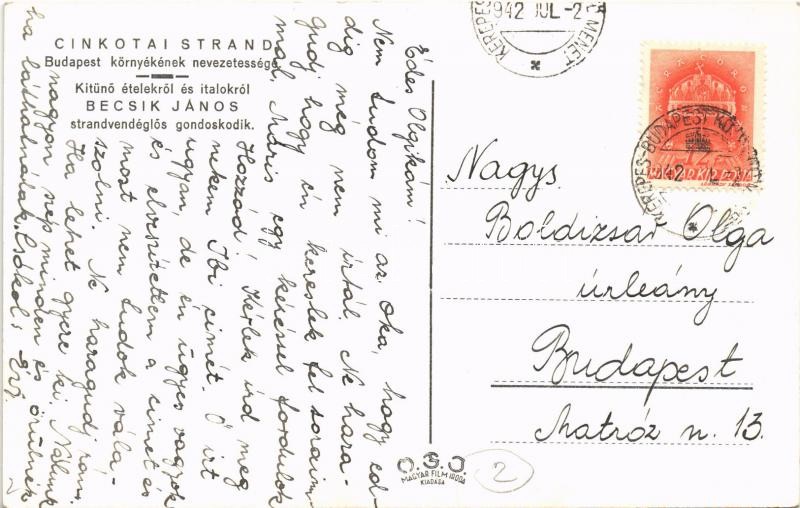 CINKOTAI STRAND
Budapest környékének nevezetessége
Kitünő ételekről és italokról
BECSIK JÁNOS
strandvendéglős gondoskodik.
Édes Olgikám!
Nem tudom mi az oka, hogy ed-
dig még nem irtál. Ne hara-
gudj hogy én kereslek fel soraim
mal. Máris egy kéréssel fordulok
Hozzád! Kérlek ird meg
nekem Ibi címét. Ő irt
ugyan, de én ügyes vagyok
és elveszitettem a cimet és
most nem tudok vála-
szolni. Ne haragudj rám.
Ha lehet gyere ki. Nálunk
nagyon szép minden és örülnék
ha láthatnálak. Csókol:
942 JUL -2
KEREPES
MENET
KERECORONA
12
MAGYAR KIR. POSTA
KEREPES-BUDAPEST
942
Nagys.
Boldizsar Olga
úrleány
Budapest
Matróz u. 13.
O.S.J.
MAGYAR FILM IRODA
KIADÁSA
2